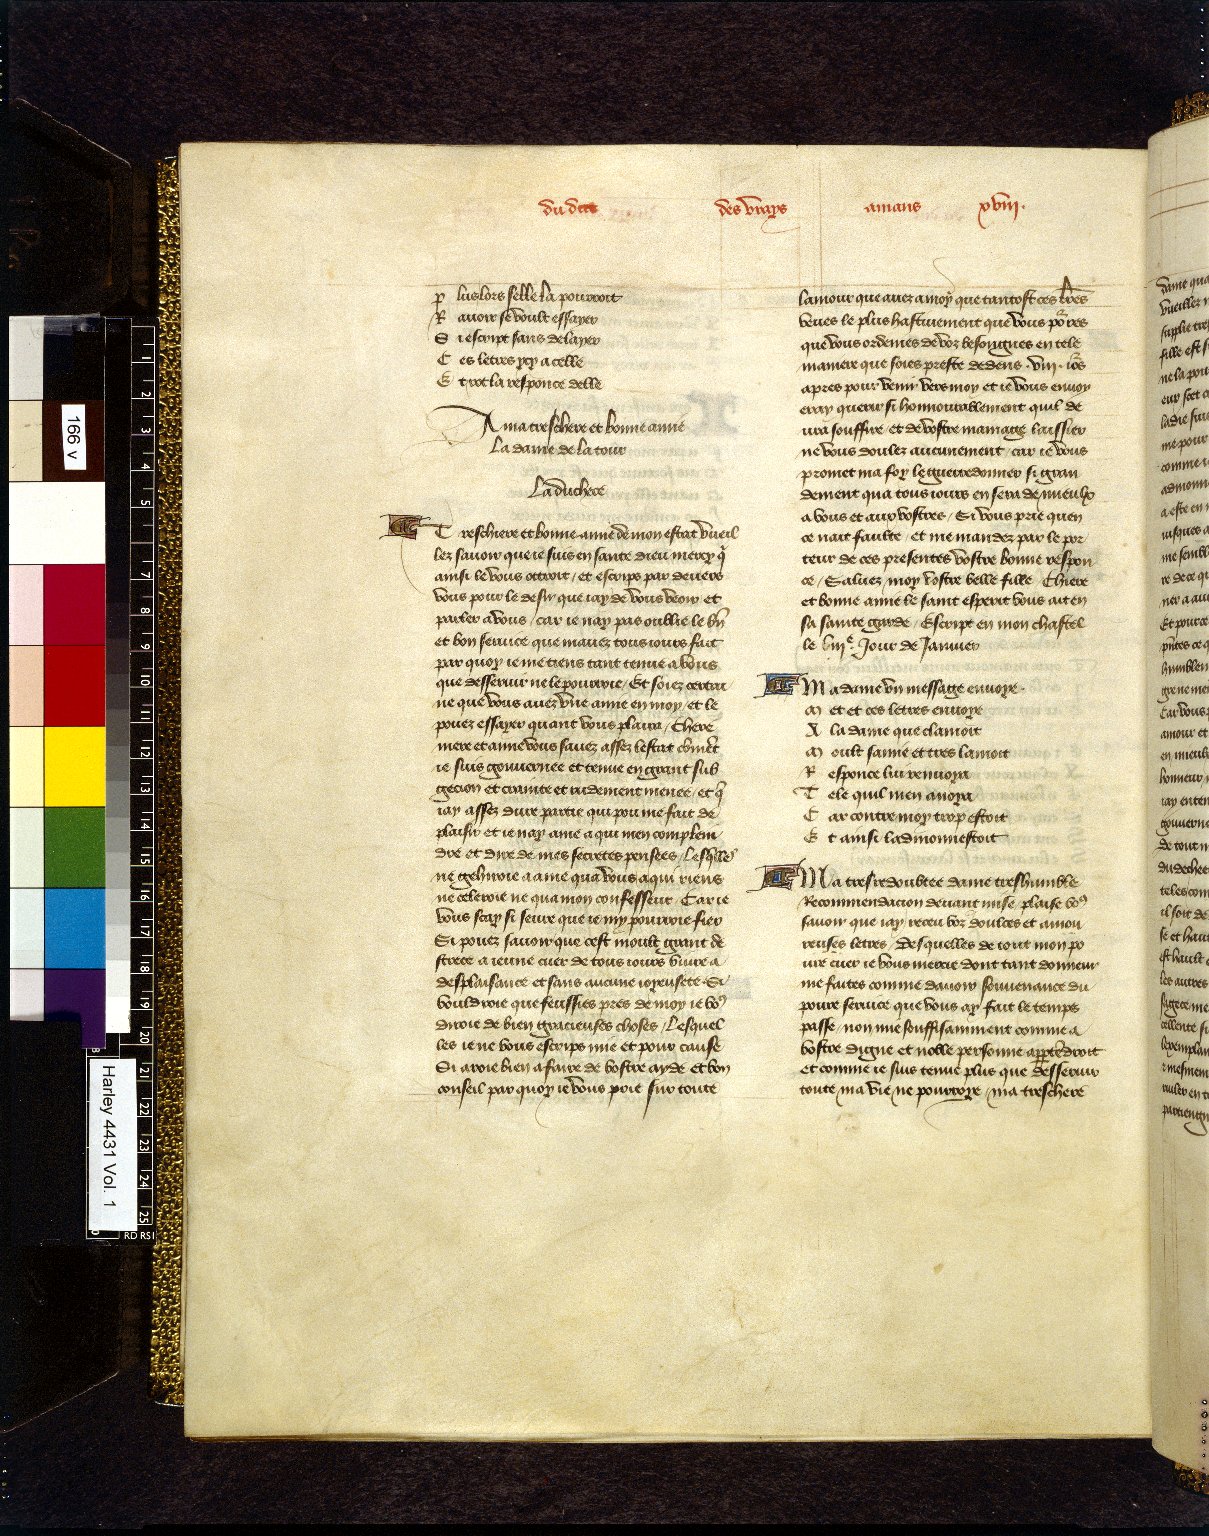 du dit des vrays amans xviii.
P luslors selle la pourroit
R auoir se voult essayer
S i escript sans delayer
C es letres ycy a celle
E t vez la responce delle
A ma treschere et bonne amie
La dame de la tour
La duchece
T reschiere et bonne amie de mon estat vueil
lez sauoir que ie suis en sante dieu mercy q̃
ainsi le vous ottroit / et escrips par deuers
vous pour le desir que iay de vous veoir et
parler a vous / car ie nay pas oublie le bñ
et bon seruice que mauez tous iours fait
par quoy ie me tiens tant tenue a vous
que desseruir ne le pourroie / Et soiez certai
ne que vous auez vne amie en moy / et le
pouez essayer quant vous plaira / Chere
mere et amie vous sauez assez lestat cõmẽt
ie suis gouuernee et tenue en grant sub
gecion et crainte et rudement menee / et q̃
iay assez dure partie qui pou me fait de
plaisir et ie nay ame a qui men complein
dre et dire de mes secretes pensees / Lesq̃lles
ne gehiroie a ame qua vous a qui riens
ne celeroie ne qua mon confesseur / Car ie
vous scay si seure que ie my pourroie fier
Si pouez sauoir que cest moult grant de
strece a ieune cuer de tous iours viure a
desplaisance et sans aucune ioyeusete Si
vouldroie que feussies pres de moy ie vo9
diroie de bien gracieuses choses / Lesquel
les ie ne vous escrips mie et pour cause
Si aroie bien a faire de vostre ayde et bon
conseil par quoy ie vous prie sur toute
lamour que auez a moy que tantost ces lr̃es
veues le plus hastiuement que vous po2res
que vous ordenies de voz besongnes en tele
maniere que soies preste dedens . viii . io2s
apres pour venir vers moy et ie vous enuoy
eray querir si honnourablement quil de
ura souffire et de vostre mainage laissier
ne vous doulez aucunement / car ie vous
promet ma foy le guerredonner si gran
dement qua tous iours en sera de mieulx
a vous et aux vostres / Si vous prie quen
ce nait faulte / et me mandez par le por
teur de ces presentes vostre bonne respon
ce / Saluez moy vostre belle fille Chiere
et bonne amie le saint esperit vous ait en
sa sainte garde / Escript en mon chastel
le viije. Jour de Januier
M a dame vn message enuoye
M et et ces letres enuoye
A la dame que clamoit
M oult saine et tres lamoit
R esponce lui renuoya
T ele quil men anoya
C ar contre moy trop estoit
E t ainsi ladmonnestoit
M a tresredoubtee dame treshumble
Recommendacion deuant mise plaise vo9
sauoir que iay receu voz doulces et amou
reuses letres / Desquelles de tout mon po
ure cuer ie vous mercie dont tant donneur
me faites comme dauoir souuenance du
poure seruice que vous ay fait le temps
passe / non mie souffisamment comme a
vostre digne et noble personne appartẽdroit
et comme ie suis tenue plus que desseruir
toute ma vie ne pourroye / ma treschere
166 v
Harley 4431 Vol. 1